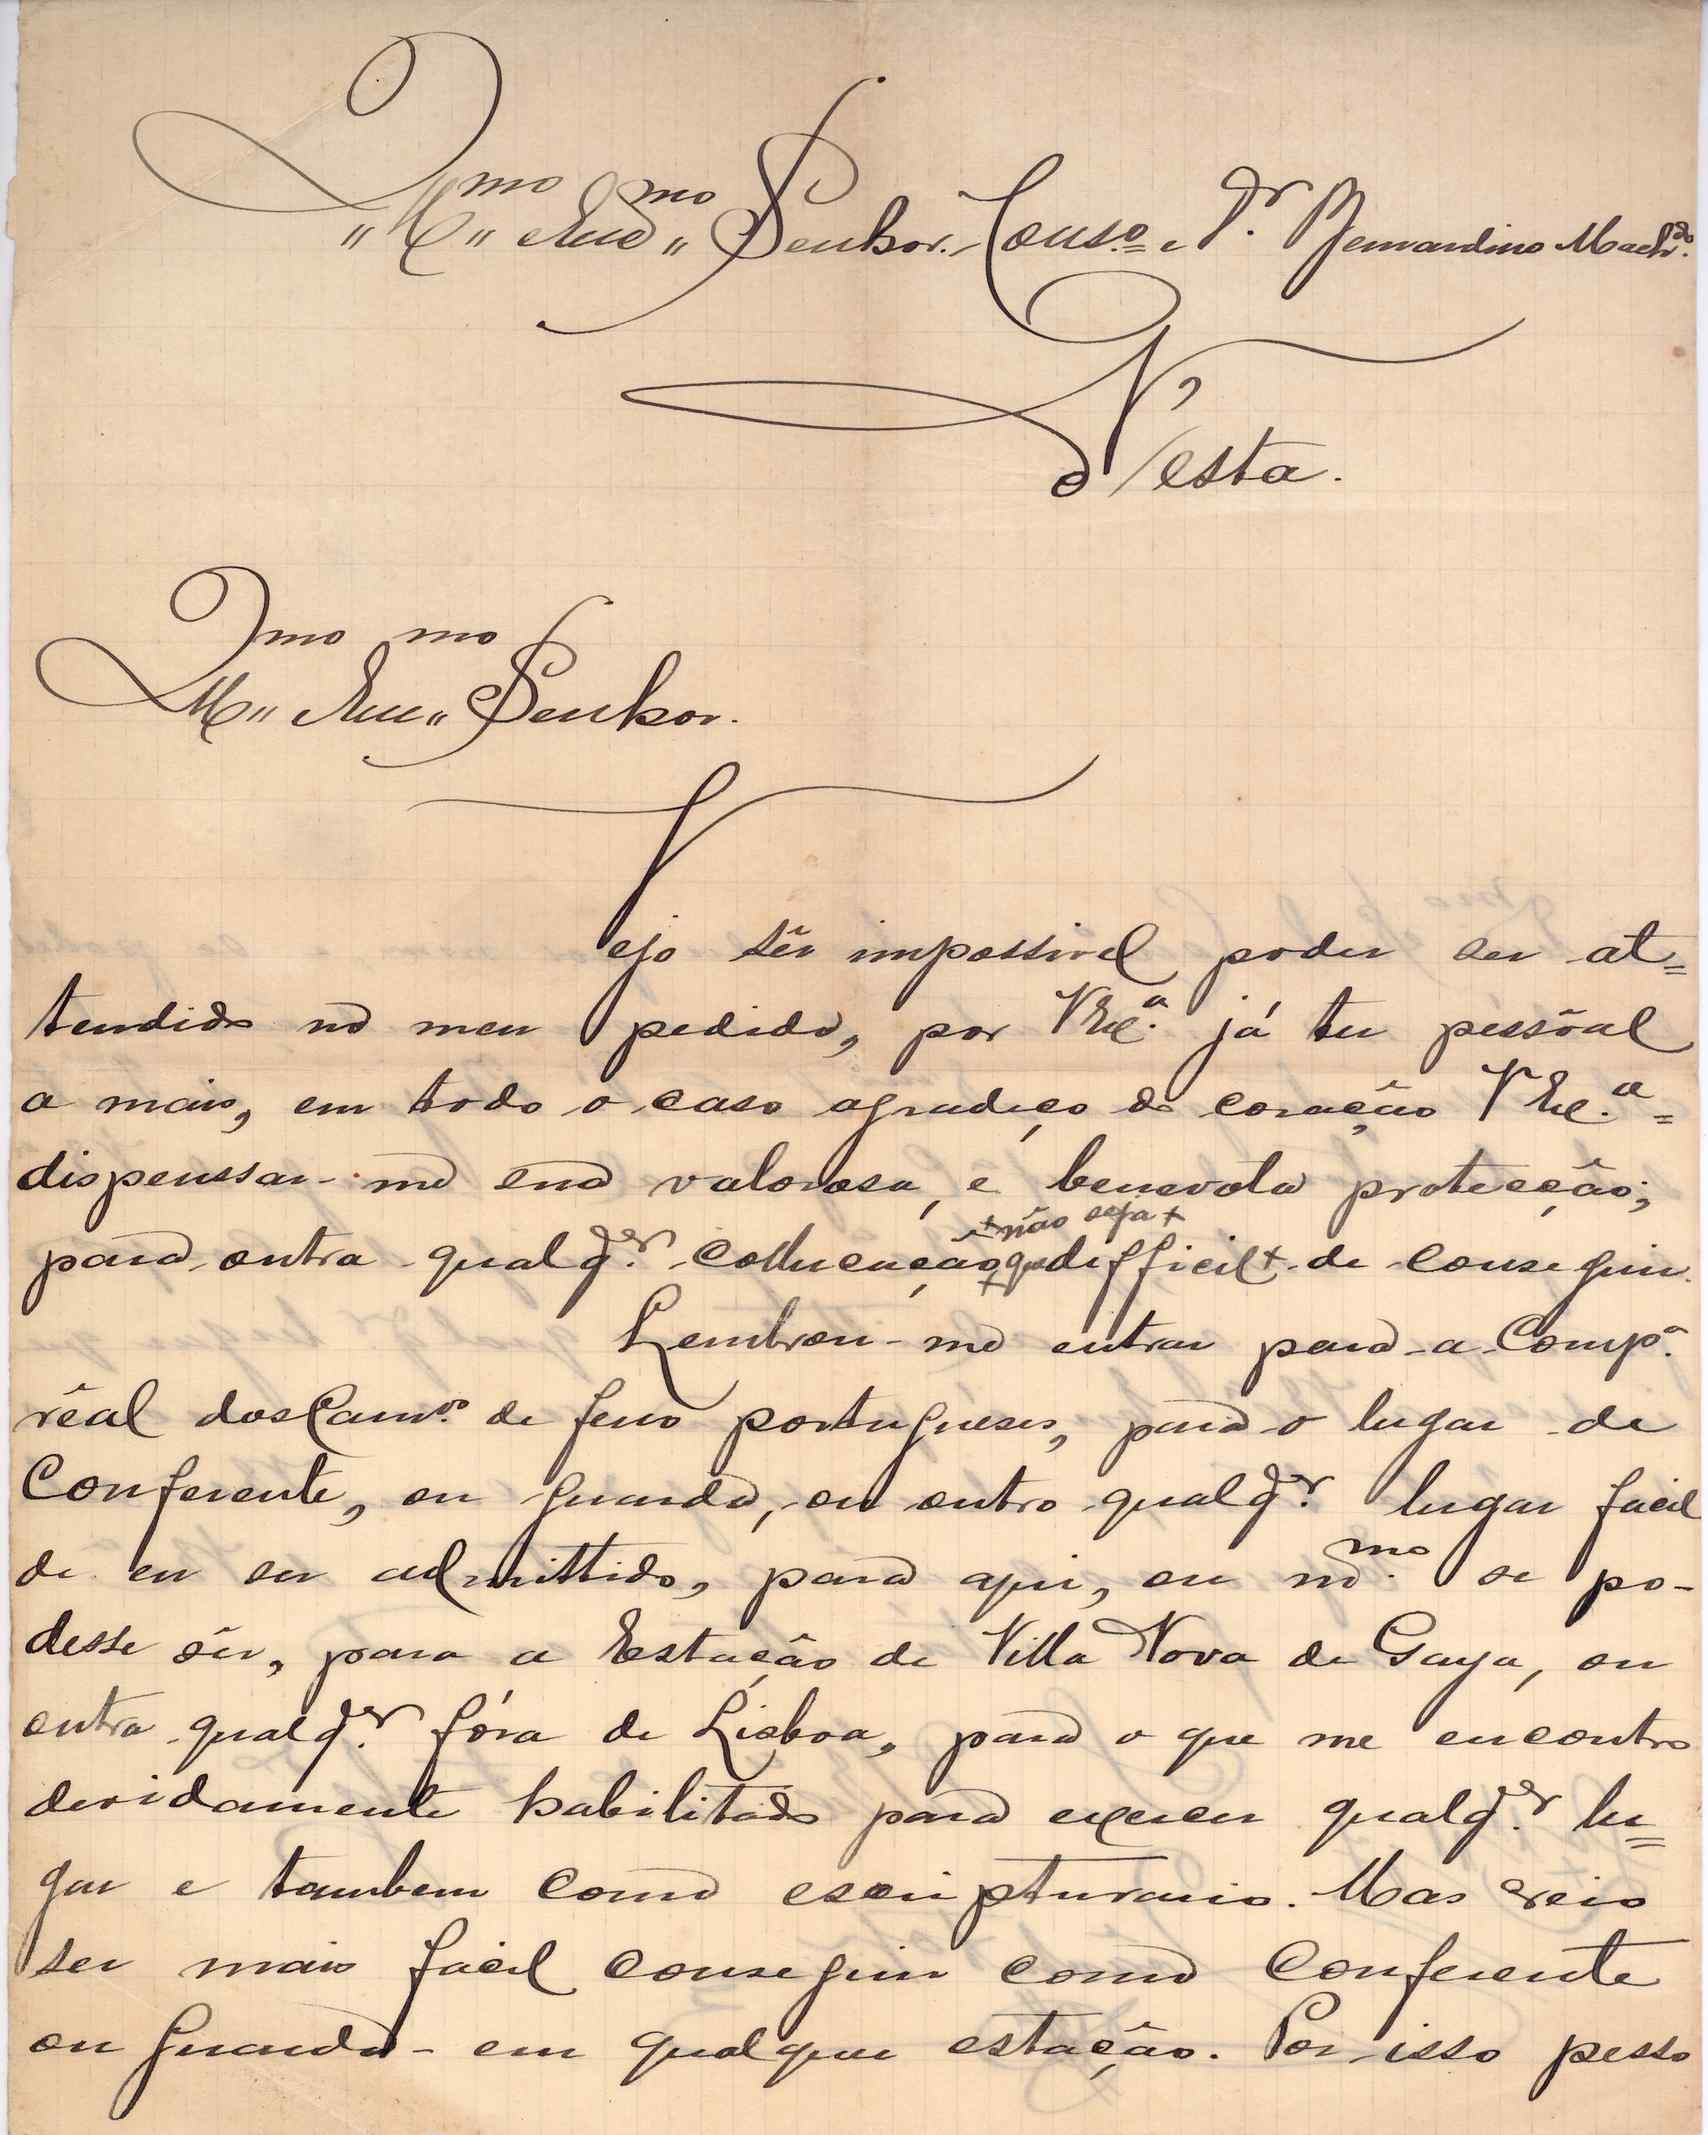 Illmo Exmo Senhor. Conso. e Dr. Bernardino Machdo.
N'esta.
Illmo Exmo Senhor.
Vejo sêr impossivel poder ser at=
tendido no meu pedido, por V Exc.ª já ter pessôal
a mais, em todo o caso agradeço de coração V Exc.ª =
dispenssar-me sua valorosa, e benevola protecção;
para outra qualqr. collucação que +não seja+ difficil+ de conseguir.
Lembrou-me entrar para a Comp.ª
rêal dos Camos. de ferro portugueses, para o lugar de
Conferente, ou guarda, ou outro qualqr. lugar facil
de eu ser admittido, para aqui, ou mmo. se po-
desse sêr, para a Estação de Villa Nova de Gaya, ou
outra qualqr. fóra de Lisboa, para o que me encontro
devidamente habilitado para exercer qualqr. lu=
gar e tambem como escripturario. Mas creio
ser mais facil conseguir como Conferente
ou guarda - em qualquer estação. Por isso pesso